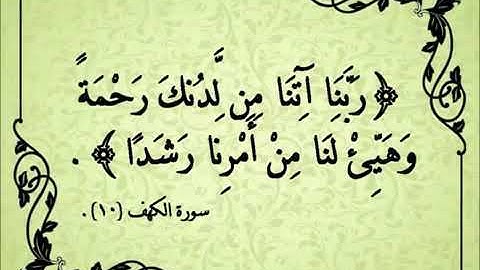 ﴿ رَبَّنَا آتِنَا مِن لَّدُنكَ رَحْمَةً
وَهَيِّئْ لَنَا مِنْ أَمْرِنَا رَشَدًا ﴾ .
سورة الكهف (١٠) .